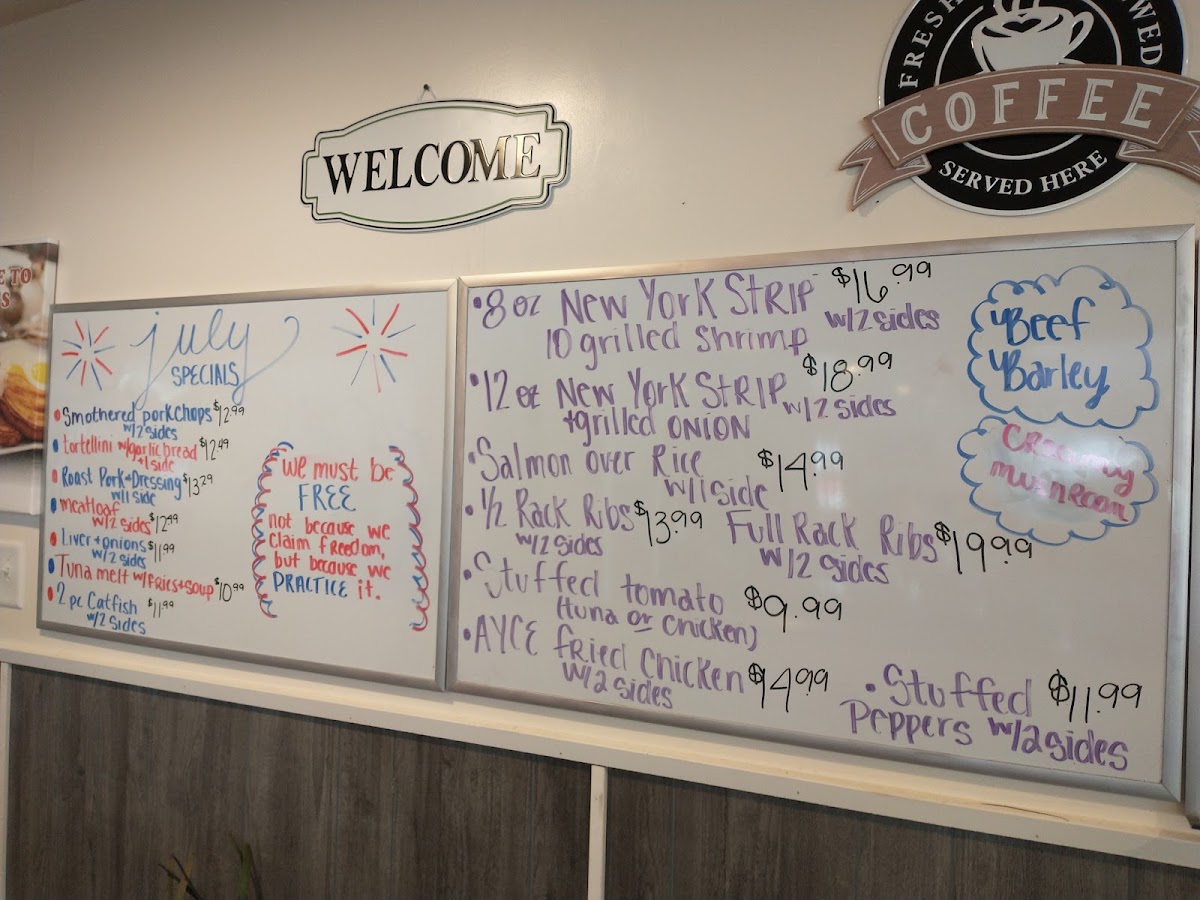 FRESH
WED
COFFEE
SERVED HERE
WELCOME
E TO
S
July
SPECIALS
• Smothered porkchops $12.99
w/2 sides
• tortellini w/garlic bread $12.49
+1 side
• Roast Pork+Dressing $13.29
w/1 side
• meatloaf
w/2 sides $12.99
• Liver+onions $11.99
w/2 sides
• Tuna melt w/fries+soup $10.99
• 2 pc Catfish $11.99
w/2 sides
we must be
FREE
not because we
claim freedom,
but because we
PRACTICE it.
• 8 oz New York Strip $16.99
10 grilled Shrimp w/2 sides
• 12 oz New York Strip $18.99
+grilled ONION w/2 sides
• Salmon over Rice $14.99
w/1 side
• 1/2 Rack Ribs $13.99 Full Rack Ribs $19.99
w/2 sides w/2 sides
• Stuffed tomato $9.99
(tuna or chicken)
• AYCE fried Chicken $14.99
w/2 sides
• Stuffed $11.99
Peppers w/2 sides
Beef
Barley
creamy